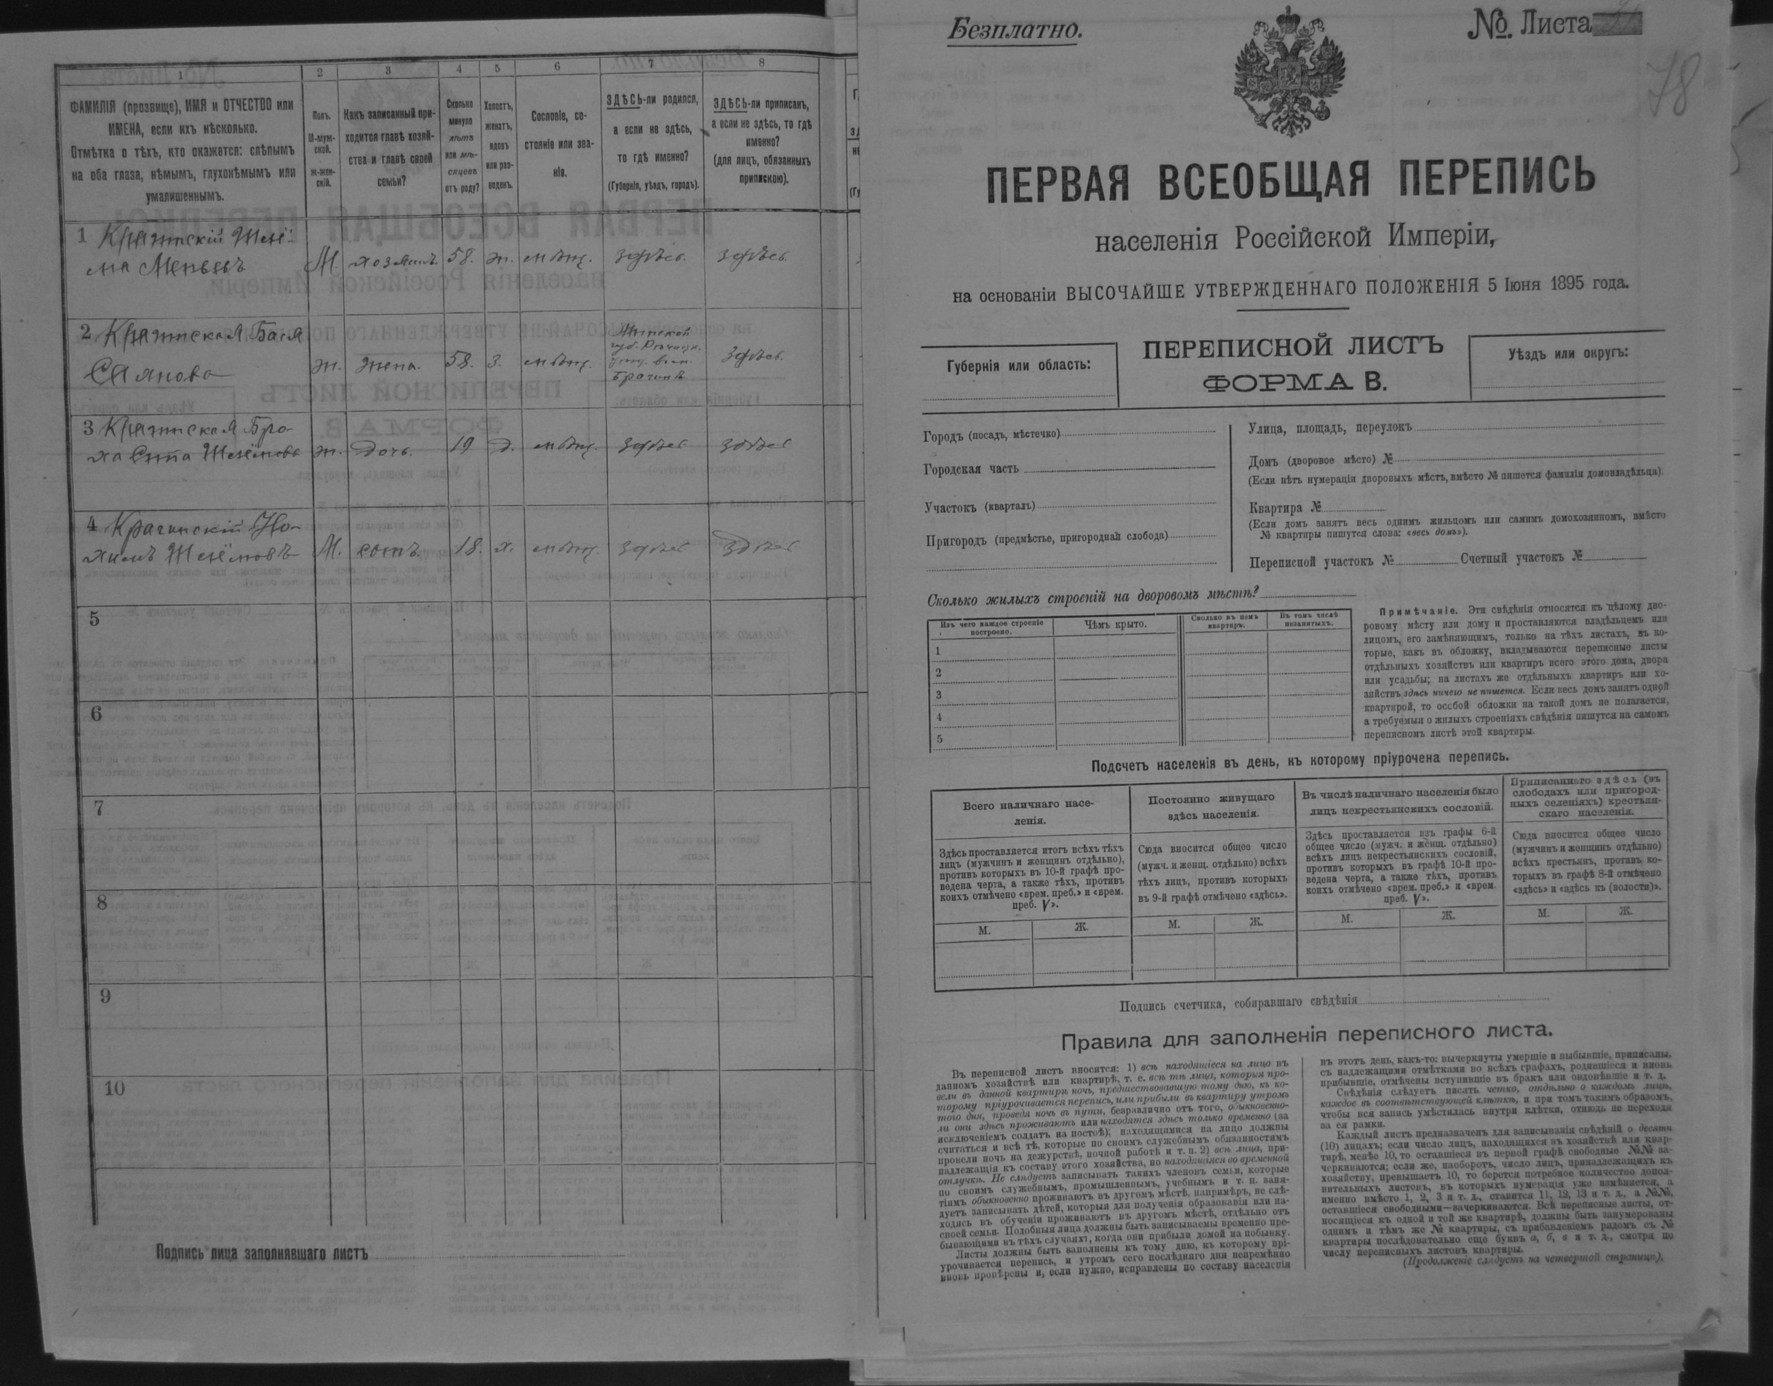 1
2
3
4
5
6
7
8
ФАМИЛІЯ (прозвище), ИМЯ и ОТЧЕСТВО или
ИМЕНА, если ихъ нѣсколько.
Отмѣтка о тѣхъ, кто окажется: слѣпымъ
на оба глаза, нѣмымъ, глухонѣмымъ или
умалишеннымъ.
Полъ.
М-муж-
ской.
Ж-жен-
скій.
Какъ записанный при-
ходится главѣ хозяй-
ства и главѣ своей
семьи?
Сколько
минуло
лѣтъ
или мѣ-
сяцевъ
отъ роду?
Холостъ,
женатъ,
вдовъ
или раз-
веденъ.
Сословіе, со-
стояніе или зва-
ніе.
ЗДѢСЬ-ли родился,
а если не здѣсь,
то гдѣ именно?
(Губернія, уѣздъ, городъ).
ЗДѢСЬ-ли приписанъ,
а если не здѣсь, то гдѣ
именно?
(для лицъ, обязанныхъ
припискою).
1
М. хозяинъ 58. ж. мѣщ. здѣсь. здѣсь
2
ж. жена. 58. з. мѣщ. здѣсь
3
ж. дочь. 19 д. мѣщ. здѣсь здѣсь
4 Крагинскій
М. сынъ 18. х. мѣщ. здѣсь здѣсь
5
6
7
8
9
10
Подпись лица заполнявшаго листъ
Безплатно.
№. Листа
78
ПЕРВАЯ ВСЕОБЩАЯ ПЕРЕПИСЬ
населенія Россійской Имперіи,
на основаніи ВЫСОЧАЙШЕ УТВЕРЖДЕННАГО ПОЛОЖЕНІЯ 5 Іюня 1895 года.
Губернія или область:
ПЕРЕПИСНОЙ ЛИСТЪ
ФОРМА В.
Уѣздъ или округъ:
Городъ (посадъ, мѣстечко)
Городская часть
Участокъ (кварталъ)
Пригородъ (предмѣстье, пригородная слобода)
Улица, площадь, переулокъ
Домъ (дворовое мѣсто) №
(Если нѣтъ нумераціи дворовыхъ мѣстъ, вмѣсто № пишется фамилія домовладѣльца)
Квартира №
(Если домъ занятъ весь однимъ жильцомъ или самимъ домохозяиномъ, вмѣсто
№ квартиры пишутся слова: «весь домъ»).
Переписной участокъ № Счетный участокъ №
Сколько жилыхъ строеній на дворовомъ мѣстѣ?
Изъ чего каждое строеніе
построено.
Чѣмъ крыто.
Сколько въ немъ
квартиръ.
Въ томъ числѣ
незанятыхъ.
1
2
3
4
5
Примѣчаніе. Эти свѣдѣнія относятся къ цѣлому дво-
ровому мѣсту или дому и проставляются владѣльцемъ или
лицомъ, его замѣняющимъ, только на тѣхъ листахъ, въ ко-
торые, какъ въ обложку, вкладываются переписные листы
отдѣльныхъ хозяйствъ или квартиръ всего этого дома, двора
или усадьбы; на листахъ же отдѣльныхъ квартиръ или хо-
зяйствъ здѣсь ничего не пишется. Если весь домъ занятъ одной
квартирой, то особой обложки на такой домъ не полагается,
а требуемыя о жилыхъ строеніяхъ свѣдѣнія пишутся на самомъ
переписномъ листѣ этой квартиры.
Подсчетъ населенія въ день, къ которому пріурочена перепись.
Всего наличнаго насе-
ленія.
Здѣсь проставляется итогъ всѣхъ тѣхъ
лицъ (мужчинъ и женщинъ отдѣльно),
противъ которыхъ въ 10-й графѣ про-
ведена черта, а также тѣхъ, противъ
коихъ отмѣчено «врем. преб.» и «врем.
преб. V».
Постоянно живущаго
здѣсь населенія.
Сюда вносится общее число
(мужч. и женщ. отдѣльно) всѣхъ
тѣхъ лицъ, противъ которыхъ
въ 9-й графѣ отмѣчено «здѣсь».
Въ числѣ наличнаго населенія было
лицъ некрестьянскихъ сословій.
Здѣсь проставляется изъ графы 6-й
общее число (мужч. и женщ. отдѣльно)
всѣхъ лицъ некрестьянскихъ сословій,
противъ которыхъ въ графѣ 10-й про-
ведена черта, а также тѣхъ, противъ
коихъ отмѣчено «врем. преб.» и «врем.
преб. V».
Приписаннаго здѣсь (въ
слободахъ или пригород-
ныхъ селеніяхъ) крестьян-
скаго населенія.
Сюда вносится общее число
(мужчинъ и женщинъ отдѣльно)
всѣхъ крестьянъ, противъ ко-
торыхъ въ графѣ 8-й отмѣчено
«здѣсь» и «здѣсь къ (волости)».
М. Ж. М. Ж. М. Ж. М. Ж.
Подпись счетчика, собиравшаго свѣдѣнія
Правила для заполненія переписного листа.
Въ переписной листъ вносятся: 1) всѣ находящіеся на лицо въ
данномъ хозяйствѣ или квартирѣ, т. е. всѣ тѣ лица, которыя про-
вели въ данной квартирѣ ночь, предшествовавшую тому дню, къ ко-
торому пріурочивается перепись, или прибыли въ квартиру утромъ
того дня, проведя ночь въ пути, безразлично отъ того, обыкновенно-
ли они здѣсь проживаютъ или находятся здѣсь только временно (за
исключеніемъ солдатъ на постоѣ); находящимися на лицо должны
считаться и всѣ тѣ, которые по своимъ служебнымъ обязанностямъ
провели ночь на дежурствѣ, ночной работѣ и т. п. 2) всѣ лица, при-
надлежащія къ составу этого хозяйства, но находящіяся во временной
отлучкѣ. Не слѣдуетъ записывать такихъ членовъ семьи, которые
по своимъ служебнымъ, промышленнымъ, учебнымъ и т. п. заня-
тіямъ обыкновенно проживаютъ въ другомъ мѣстѣ, напримѣръ, не слѣ-
дуетъ записывать дѣтей, которыя для полученія образованія или на-
ходясь въ обученіи проживаютъ въ другомъ мѣстѣ, отдѣльно отъ
своей семьи. Подобныя лица должны быть записываемы временно пре-
бывающими въ тѣхъ случаяхъ, когда они прибыли домой на побывку.
Листы должны быть наполнены къ тому дню, къ которому прі-
урочивается перепись, и утромъ сего послѣдняго дня непремѣнно
вновь провѣрены и, если нужно, исправлены по составу населенія
въ этотъ день, какъ-то: вычеркнуты умершіе и выбывшіе, приписаны,
съ надлежащими отмѣтками по всѣхъ графахъ, родившіеся и вновь
прибывшіе, отмѣчены вступившіе въ бракъ или овдовѣвшіе и т. д.
Свѣдѣнія слѣдуетъ писать четко, отдѣльно о каждомъ лицѣ,
каждое въ соотвѣтствующей клѣткѣ, и при томъ такимъ образомъ,
чтобы вся запись умѣстилась внутри клѣтки, отнюдь не переходя
за ея рамки.
Каждый листъ предназначенъ для записыванія свѣдѣній о десяти
(10) лицахъ; если число лицъ, находящихся въ хозяйствѣ или квар-
тирѣ, менѣе 10, то оставшіеся въ первой графѣ свободные №№ за-
черкиваются; если же, наоборотъ, число лицъ, принадлежащихъ къ
хозяйству, превышаетъ 10, то берется потребное количество допол-
нительныхъ листовъ, въ которыхъ нумерація уже измѣняется, а
именно вмѣсто 1, 2, 3 и т. д., ставится 11, 12, 13 и т. д., а №№,
оставшіеся свободными—зачеркиваются. Всѣ переписные листы, от-
носящіеся къ одной и той же квартирѣ, должны быть занумерованы
однимъ и тѣмъ же № квартиры, съ прибавленіемъ рядомъ съ №
квартиры послѣдовательно еще буквъ а, б, в и т. д., смотря по
числу переписныхъ листовъ квартиры.
(Продолженіе слѣдуетъ на четвертой страницѣ).